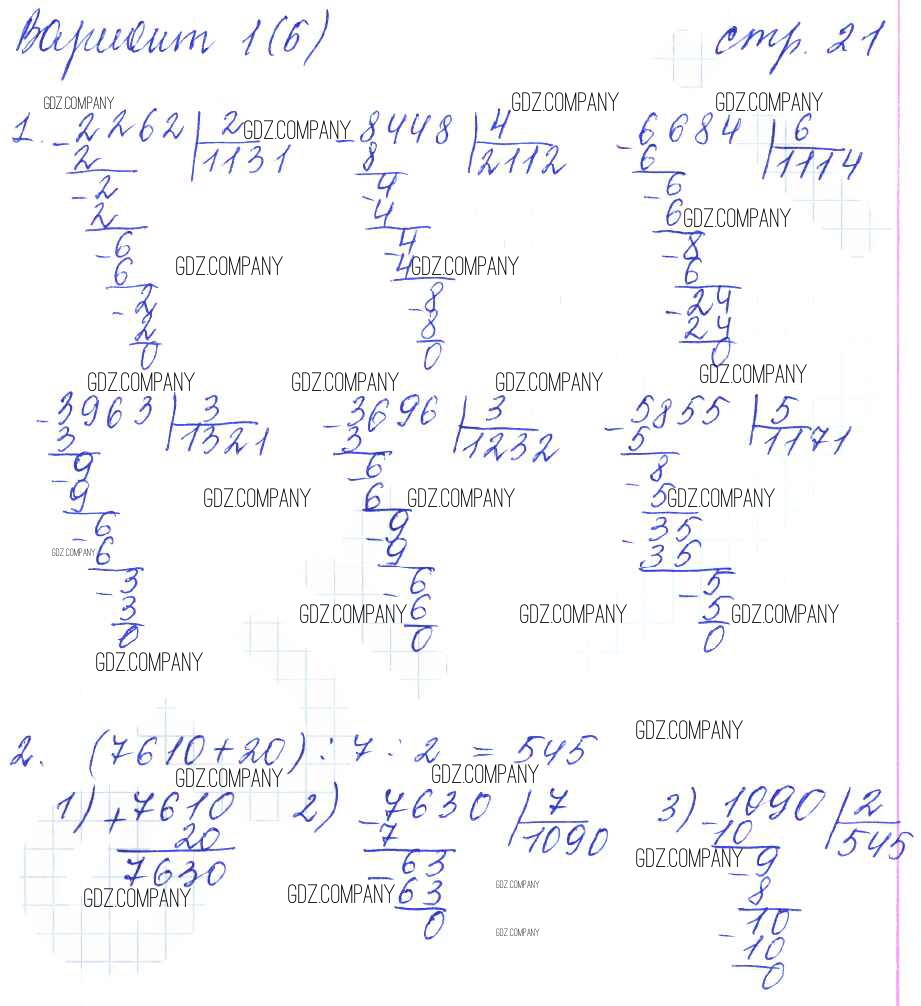 Вариант 1(б) стр. 21
GDZ.COMPANY GDZ.COMPANY GDZ.COMPANY
1. -2262 | 2 GDZ.COMPANY -8448 | 4 -6684 | 6
2 1131 8 2112 6 1114
-2 -4 -6
2 4 6 GDZ.COMPANY
-6 -4 -8
6 GDZ.COMPANY 4 GDZ.COMPANY 6
-2 -8 -24
2 8 24
0 0 0
GDZ.COMPANY GDZ.COMPANY GDZ.COMPANY GDZ.COMPANY
-3963 | 3 -3696 | 3 -5855 | 5
3 1321 3 1232 5 1171
-9 -6 -8
9 GDZ.COMPANY 6 GDZ.COMPANY 5 GDZ.COMPANY
-6 -9 -35
GDZ.COMPANY 6 9 35
-3 -6 -5
3 GDZ.COMPANY 6 GDZ.COMPANY 5 GDZ.COMPANY
0 0 0
GDZ.COMPANY
GDZ.COMPANY
2. (7610+20) : 7 : 2 = 545
GDZ.COMPANY GDZ.COMPANY
1) +7610 2) -7630 | 7 3) -1090 | 2
20 7 1090 10 545
7630 -63 GDZ.COMPANY -9
GDZ.COMPANY GDZ.COMPANY 63 GDZ.COMPANY 8
0 -10
GDZ.COMPANY 10
0